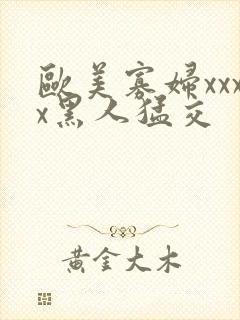 歐美寡婦xxx
x黑人猛交
黃金大木